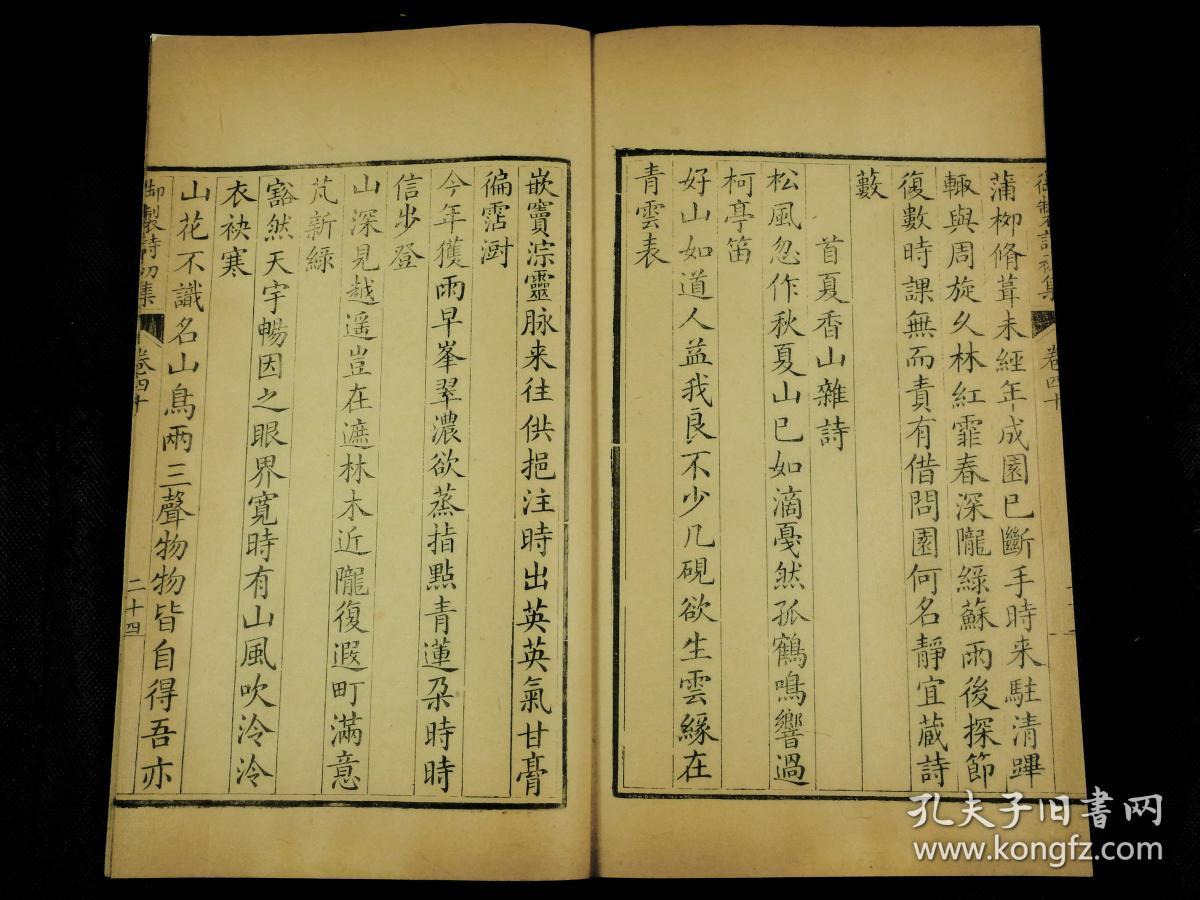 蒲柳脩葺未經年成園已斷手時来駐清蹕
輙與周旋久林紅霏春深隴綠蘇雨後探節
復數時課無而責有借問園何名靜宜蔵詩
藪
首夏香山雜詩
松風忽作秋夏山已如滴戞然孤鶴鳴響過
柯亭笛
好山如道人益我良不少几硯欲生雲緣在
青雲表
嵌竇淙靈脉来往供挹注時出英英氣甘膏
徧霑澍
今年獲雨早峯翠濃欲蒸指點青蓮朶時時
信步登
山深見越遥豈在遮林木近隴復遐町滿意
芃新綠
豁然天宇暢因之眼界寛時有山風吹泠泠
衣袂寒
山花不識名山鳥兩三聲物物皆自得吾亦
御製詩初集
卷四十
二十四
御製詩初集
卷四十
孔夫子旧书网
www.kongfz.com